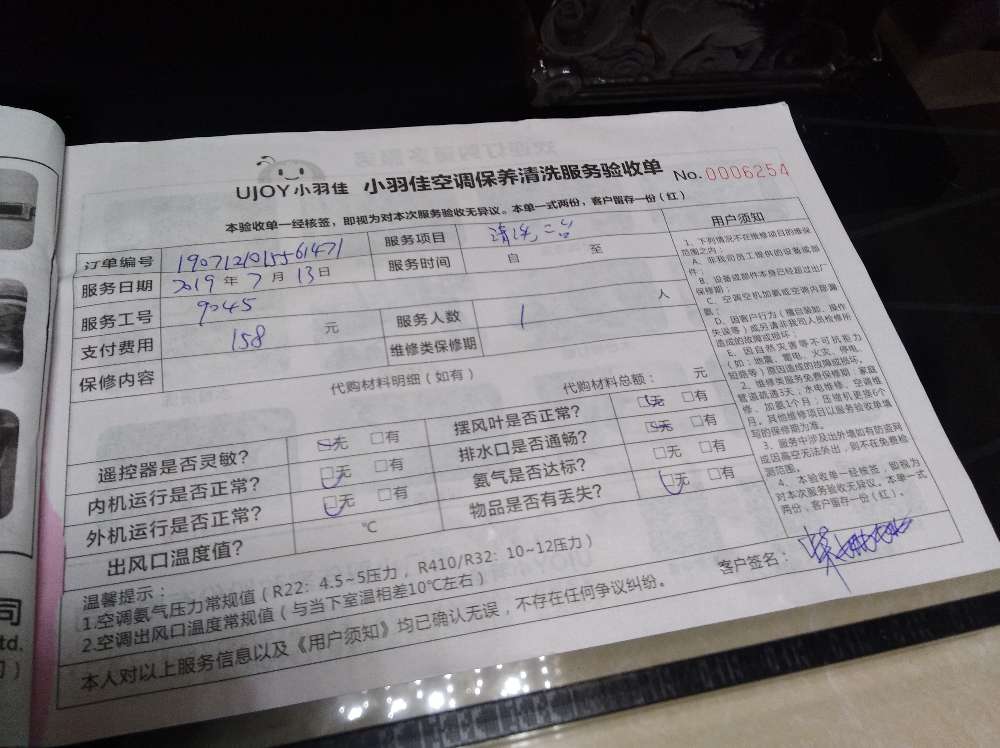 UJOY小羽佳 小羽佳空调保养清洗服务验收单 No.0006254
本验收单一经核签，即视为对本次服务验收无异议。本单一式两份，客户留存一份（红）
订单编号 190712101556147​1 服务项目 清洗二台
服务日期 2019 年 7 月 13 日 服务时间 自 至
服务工号 9045
支付费用 158 元 服务人数 1 人
保修内容 维修类保修期
代购材料明细（如有） 代购材料总额： 元
遥控器是否灵敏？ □无 □有 摆风叶是否正常？ □无 □有
内机运行是否正常？ □无 □有 排水口是否通畅？ □无 □有
外机运行是否正常？ □无 □有 氨气是否达标？ □无 □有
出风口温度值？ ℃ 物品是否有丢失？ □无 □有
温馨提示：
1.空调氨气压力常规值（R22：4.5~5压力，R410/R32：10~12压力）
2.空调出风口温度常规值（与当下室温相差10℃左右）
本人对以上服务信息以及《用户须知》均已确认无误，不存在任何争议纠纷。 客户签名：
用户须知
1、下列情况不在维修项目的维保
范围之内：
A、非我司员工提供的设备或部
件；
B、设备或部件本身已经超过出厂
保修期；
C、空调空机加氨或空调内部漏
氨；
D、因客户行为（擅自装卸、操作
失误等）或另请非我司人员检修所
造成的故障或损坏；
E、因自然灾害等不可抗拒力
（如：地震、雷电、火灾、停电、
短路等）原因造成的故障或损坏。
2、维修类服务免费保修期：家庭
管道疏通3天，水电维修、空调维
修、加氨1个月；压缩机更换6个
月。其他维修项目以服务验收单填
写的保修期为准。
3、服务中涉及出外墙如有防盗网
或因高空无法外出，则不在免费检
测范围。
4、本验收单一经核签，即视为
对本次服务验收无异议。本单一式
两份，客户留存一份（红）。
司
td.